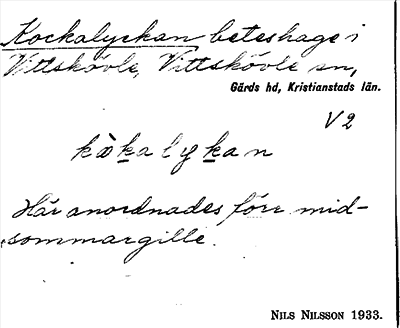 Kockalyckan beteshage i
Vittskövle, Vittskövle sn,
Gärds hd, Kristianstads län.
V2
kàkalykan
Här anordnades förr mid-
sommargille.
NILS NILSSON 1933.